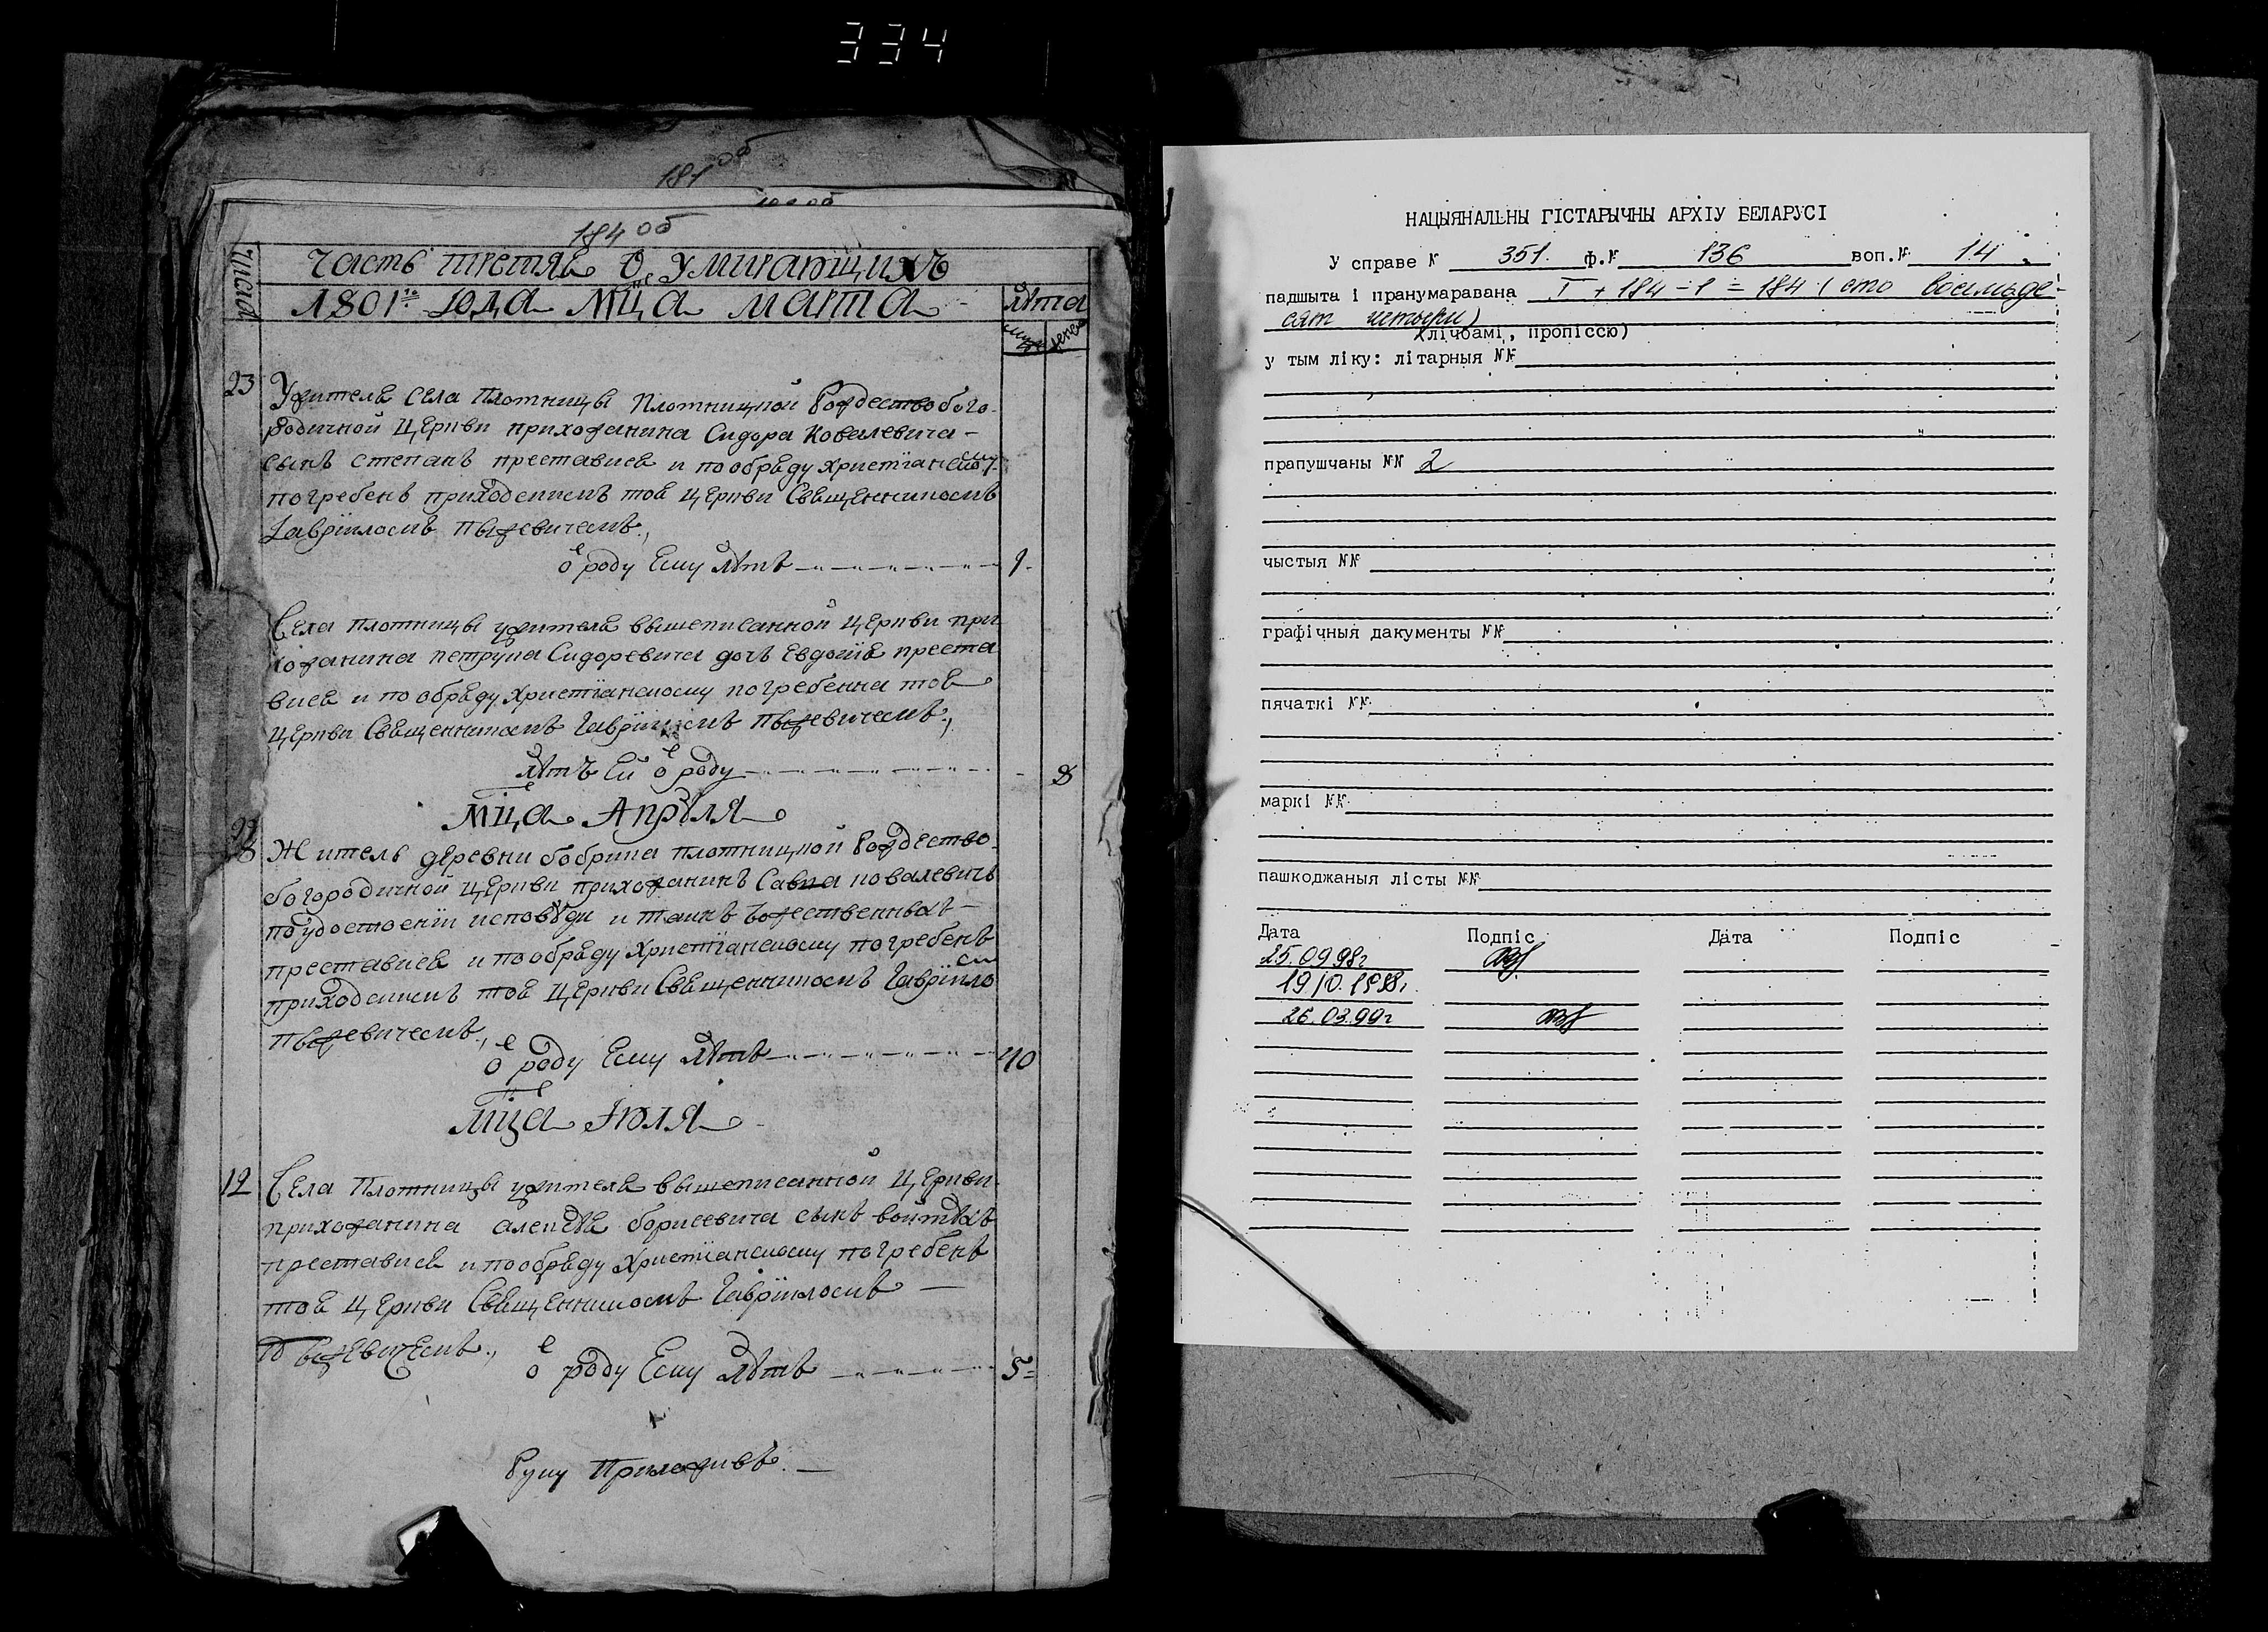 334
181 об
184 об
числа
Часть третяя О Умирающихъ
1801го года мца марта
лѣта
муж женск
23
Жителя Села Плотницы Плотницкой Рождество бого-
родичной Церкви прихожанина Сидора Ковалевича
сынъ степанъ преставися и по обряду христіанскому
погребенъ приходскимъ тоя Церкви Священникомъ
Гавріиломъ Пыжевичемъ.,
о роду Ему лѣтъ
9
Села Плотницы жителя вышеписанной Церкви при
хожанина петрука Сидоревича дочь Евдокія преста
вися и по обряду христіанскому погребенна тоя
Церкви Священникомъ Гавріиломъ Пыжевичемъ.,
лѣтъ Ей о роду
8
мца Апрѣля
Житель деревни бобрика плотницкой Рождество
богородичной Церкви прихожанинъ Савка ковалевичъ
по удостоеніи исповѣди и таинъ божественныхъ
преставися и по обряду христіанскому погребенъ
приходскимъ тоя Церкви Священникомъ Гавріило
мъ
пыжевичемъ.,
о роду Ему лѣтъ
40
мца Іюля
12
Села Плотницы жителя вышеписанной Церкви
прихожанина алексѣя борисевича сынъ войтѣхъ
преставися и по обряду христіанскому погребенъ
тоя Церкви Священникомъ Гавріиломъ
Пыжевичемъ.,
о роду Ему лѣтъ
5
Руку Приложивъ.
НАЦЫЯНАЛЬНЫ ГІСТАРЫЧНЫ АРХІУ БЕЛАРУСІ
У справе № 351. ф.№ 136 воп.№ 14.
падшыта і пранумаравана I + 184 - 1 = 184 (сто восемьде-
сят четыри)
(лічбамі, пропіссю)
у тым ліку: літарныя №№
прапушчаны №№ 2
чыстыя №№
графічныя дакументы №№
пячаткі №№
маркі №№
пашкоджаныя лісты №№
Дата Подпіс Дата Подпіс
25.09.98г
19.10.1998г.
26.03.99г